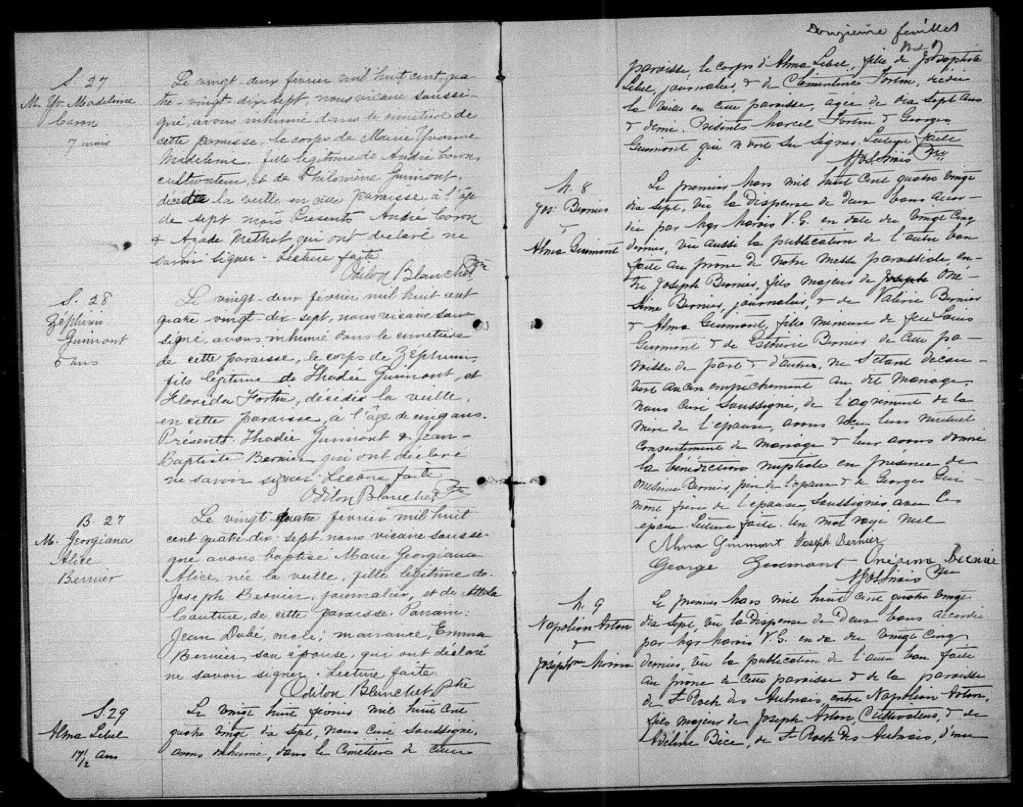 S. 27
M. Yv. Madeleine
Caron
7 mois
Le vingt-deux février mil huit cent qua-
tre-vingt-dix sept, nous vicaire soussi-
gné, avons inhumé dans le cimetière de
cette paroisse, le corps de Marie Yvonne
Madeleine, fille légitime de André Caron,
cultivateur, et de Philomène Guimont,
décédée la veille en cette paroisse à l'âge
de sept mois Présents André Caron
& Agade Methot qui ont déclaré ne
savoir signer. Lecture faite
Odilon Blanchet Ptre
S. 28
Zéphirin
Guimont
5 ans
Le vingt-deux février mil huit cent
quatre-vingt dix sept, nous vicaire sous-
signé, avons inhumé dans le cimetière
de cette paroisse, le corps de Zéphirin,
fils légitime de Thadée Guimont, et
Florida Fortin, décédé la veille,
en cette paroisse, à l'âge de cinq ans.
Présents: Thadée Guimont & Jean-
Baptiste Bernier qui ont déclaré
ne savoir signer. Lecture faite
Odilon Blanchet Ptre
B. 27
M. Georgiana
Alice
Bernier
Le vingt quatre février mil huit
cent quatre dix sept nous vicaire sousse-
gné avons baptisé Marie Georgiana
Alice, née la veille, fille légitime de
Joseph Bernier, journalier, et de
Couture, de cette paroisse. Parrain:
Jean Dubé, oncle; marraine, Emma
Bernier, son épouse, qui ont déclaré
ne savoir signer. Lecture faite.
Odilon Blanchet ptre
S. 29
Alma Lebel
17 1/2 ans
Le vingt huit février mil huit cent
quatre vingt dix sept, Nous Curé soussigné,
avons inhumé, dans le Cimetière de cette
Douzième feuillet
paroisse, le corps d'Alma Lebel, fille de Jn Baptiste
Lebel, journalier, & de Clémentine Fortin, décédée
la veille en cette paroisse, âgée de dix sept ans
& demie. Présents Marcel Fortin & Georges
Guimont qui n'ont su signer. Lecture faite
Ptre
M. 8
Jos. Bernier
&
Alma Guimont
Le premier Mars mil huit cent quatre vingt
dix sept, vu la dispense de deux bans accor-
dée par Mgr Marois V.G. en date du vingt cinq
dernier, vu aussi la publication de l'autre ban
faite au prône de notre messe paroissiale en-
tre Joseph Bernier, fils majeur de Joseph Oné-
sime Bernier, journalier, & de Valérie Bernier
& Alma Guimont, fille mineure de feu Louis
Guimont & de Bernier de cette pa-
roisse de part & d'autres, ne s'étant décou-
vert aucun empêchement au dit mariage,
Nous Curé Soussigné, de l'agrément de la
mère de l'épouse, avons reçu leur mutuel
consentement de mariage & leur avons donné
la bénédiction nuptiale en présence de
Onésime Bernier, père de l'époux & de Georges Gui-
mont frère de l'épouse, soussignés avec les
époux. Lecture faite. Un mot rayé nul
Alma Guimont Joseph Bernier
George Guimont Onésime Bernier
Ptre
M. 9
Napoléon Morin
&
Joséphine Morin
Le premier Mars mil huit cent quatre vingt
dix sept, vu la dispense de deux bans accordée
par Mgr Marois V.G. en date du vingt cinq
dernier, vu la publication de l'autre ban faite
au prône de cette paroisse & de la paroisse
de St Roch des Aulnais, entre Napoléon
fils majeur de Joseph Cultivateur, & de
Adéline de St Roch des Aulnais, d'une